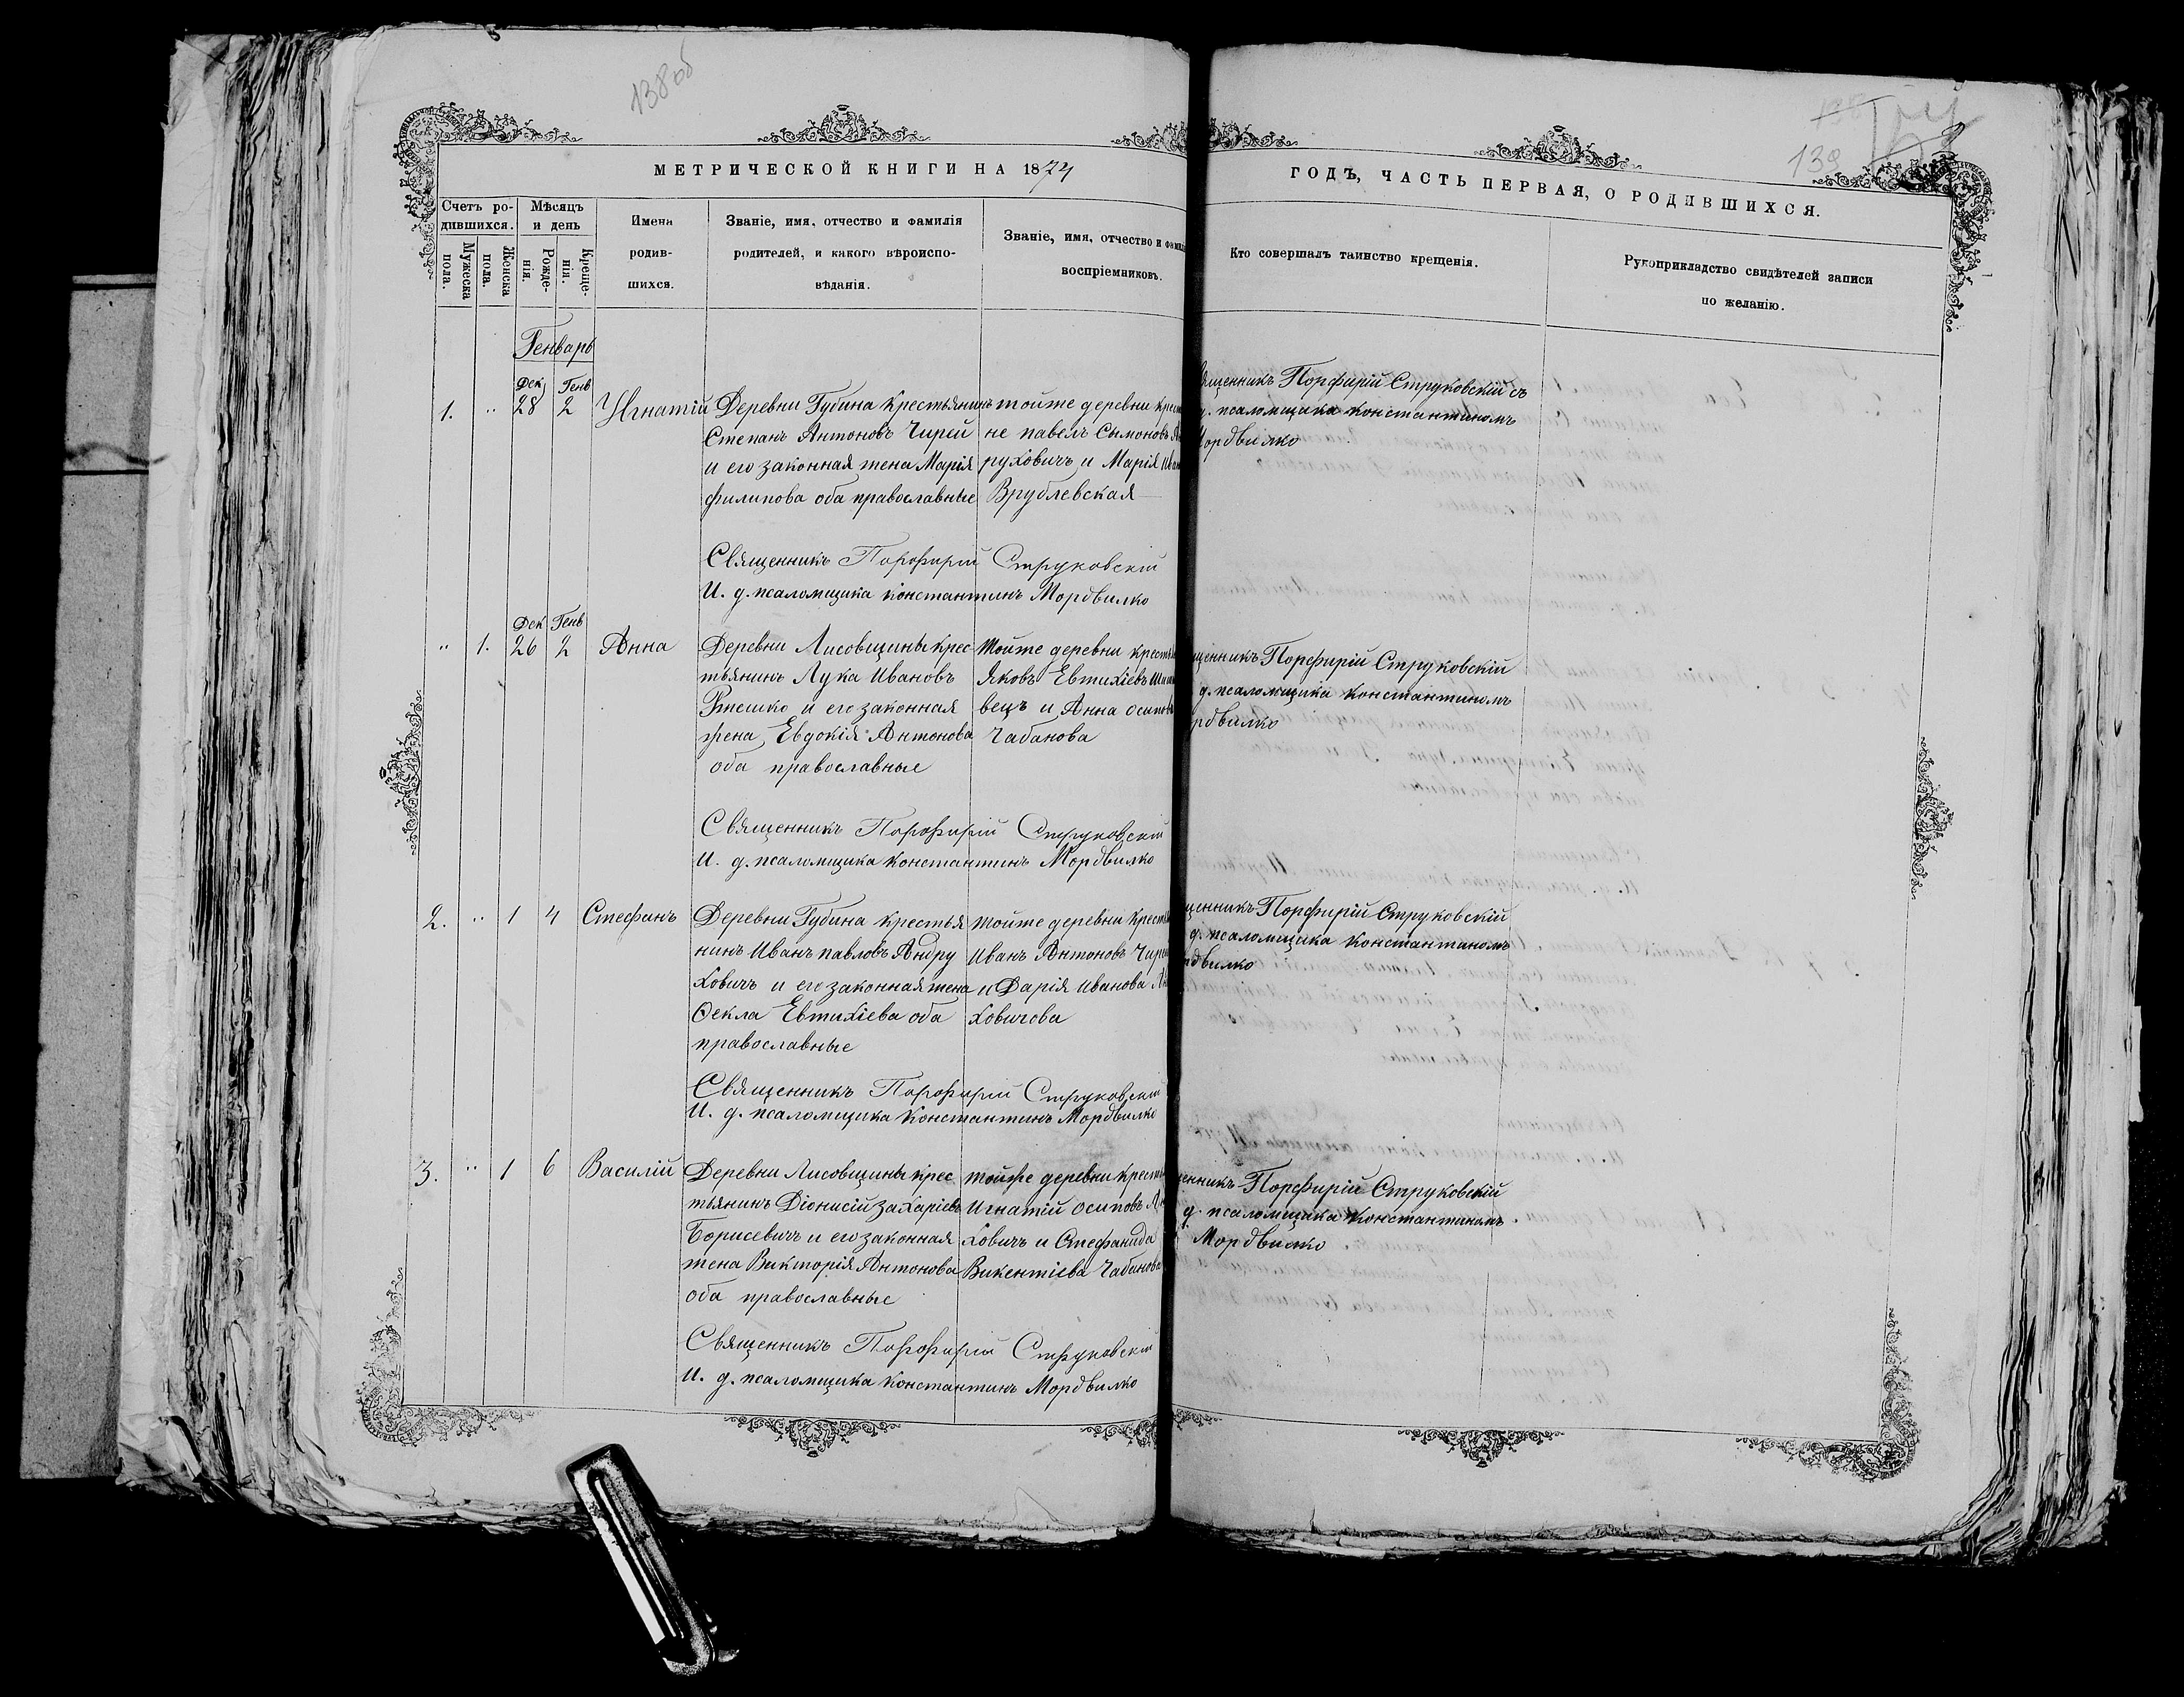 138об
139
МЕТРИЧЕСКОЙ КНИГИ НА 1874
ГОДЪ, ЧАСТЬ ПЕРВАЯ, О РОДИВШИХСЯ.
Счетъ ро-
дившихся.
Мужеска
пола.
Женска
пола.
Мѣсяцъ
и день
Рожде-
нія.
Креще-
нія.
Имена
родив-
шихся.
Званіе, имя, отчество и фамилія
родителей, и какого вѣроиспо-
вѣданія.
Званіе, имя, отчество и фами
воспріемниковъ.
Кто совершалъ таинство крещенія.
Рукоприкладство свидѣтелей записи
по желанію.
Генварь
Дек Генв
1. " 28 2 Игнатій
Деревни Губина крестьянинъ
Степанъ Антоновъ Чирей
и его законная жена Марія
филипова оба православные
тойже деревни крест
не павелъ Сымоновъ Ан
руховичъ и Марія Иван
Врублевская
ященникъ Порфирій Струковскій съ
д. псаломщика константиномъ
Мордвилко
Священникъ Порфирій Струковскій
И. д. псаломщика константинъ Мордвилко
Дек Генв
" 1. 26 2 Анна
Деревни Лисовщины крес
тьянинъ Лука Ивановъ
и его законная
жена Евдокія Антонова
оба православные
тойже деревни крестья
Яковъ Евтихіевъ
вецъ и Анна осипова
Чабанова
щенникъ Порфирій Струковскій
д. псаломщика константиномъ
рдвилко
Священникъ Порфирій Струковскій
И. д. псаломщика константинъ Мордвилко
2. " 1 4 Стефанъ
Деревни Губина крестья
нинъ Иванъ павловъ Андру
ховичъ и его законная жена
Фекла Евтихіева оба
православные
тойже деревни крестья
Иванъ Антоновъ Чирей
и Дарія Иванова Ан
ховичова
щенникъ Порфирій Струковскій
д. псаломщика константиномъ
рдвилко
Священникъ Порфирій Струковскій
И. д. псаломщика константинъ Мордвилко
3. " 1 6 Василій
Деревни Лисовщины крес
тьянинъ Діонисій захаріевъ
Борисевичъ и его законная
жена Викторія Антонова
оба православные
тойже деревни кресть
Игнатій осиповъ Ан
ховичъ и Стефанида
Викентіева Чабанова
щенникъ Порфирій Струковскій
д. псаломщика константиномъ
Мордвилко
Священникъ Порфирій Струковскій
И. д. псаломщика константинъ Мордвилко